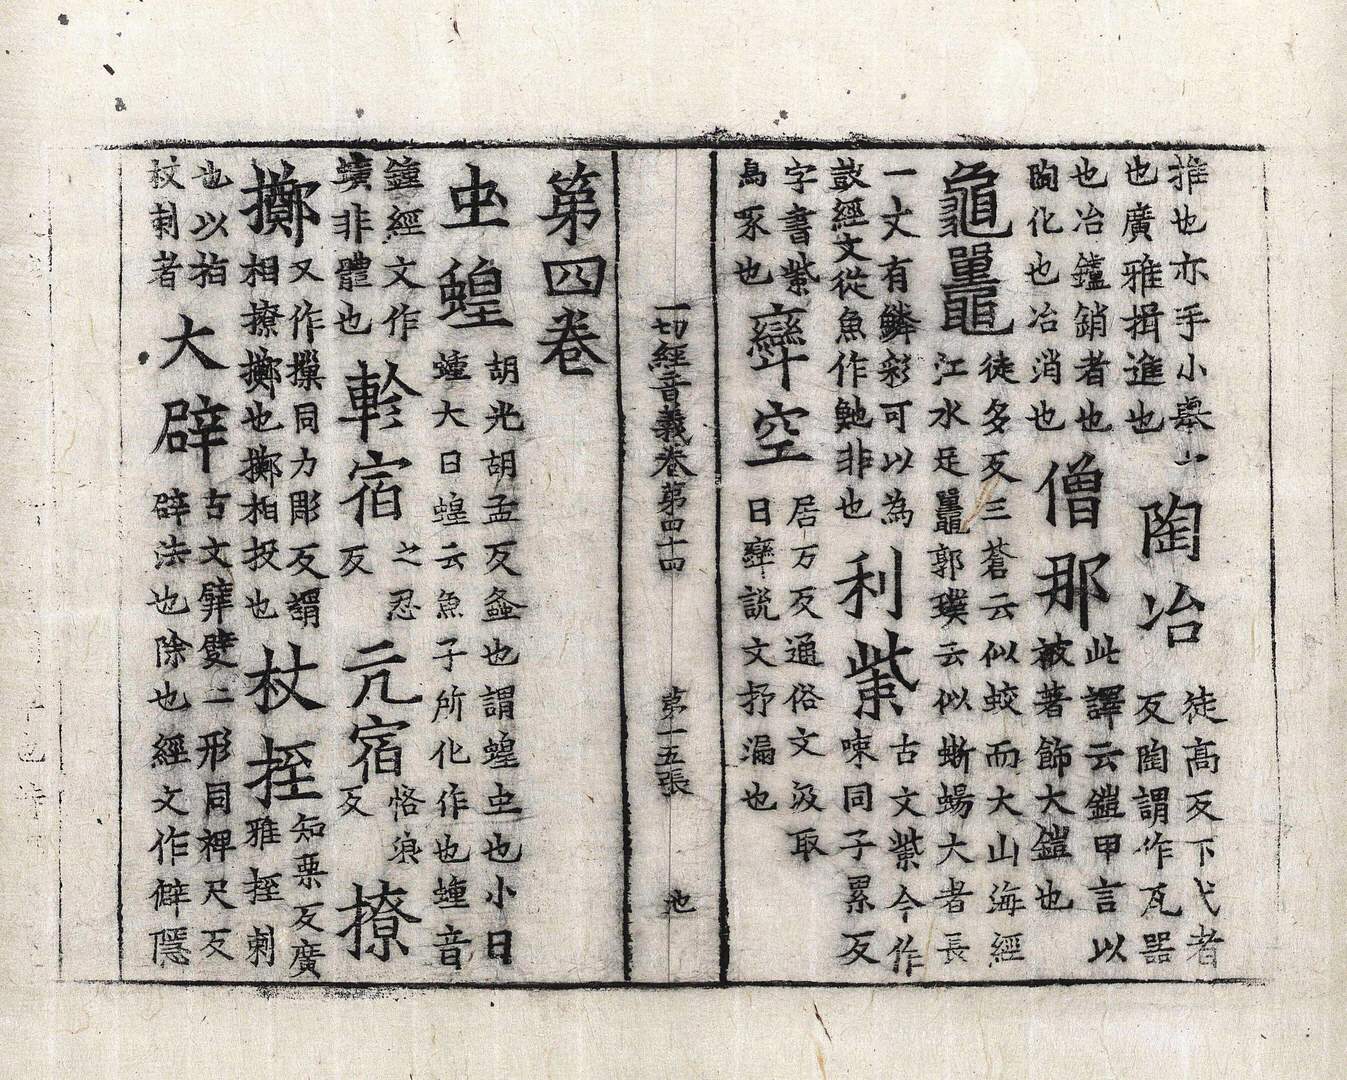 推也亦手小舉也 陶冶 徒高反下弋者
也廣雅揖進也 反陶謂作瓦器
也冶鑪銷者也 僧那 此譯云鎧甲言以
陶化也冶消也 被著飾大鎧也
龜鼉 徒多反三蒼云似蛟而大山海經
江水足鼉郭璞云似蜥蜴大者長
一丈有鱗彩可以為 利㭰 古文㭰今作
鼓經文從魚作鮑非也 㖩同子累反
字書㭰 㪻空 居万反通俗文汲取
鳥豕也 曰㪻説文抒漏也
一切經音義卷第四十四 第十五張 池
第四卷
虫蝗 胡光胡孟反螽也謂蝗虫也小曰
𧑄大曰蝗云魚子所化作也𧑄音
鐘經文作 軫宿 之忍 亢宿 恪浪 撩
蟥非體也 反 反
擲 又作摷同力彫反謂 杖挃 知栗反廣
相撩擲也擲拍投也 雅挃刺
也以拍 大辟 古文𨐢𨐨二形同裨尺反
杖刺者 辟法也除也經文作僻隱